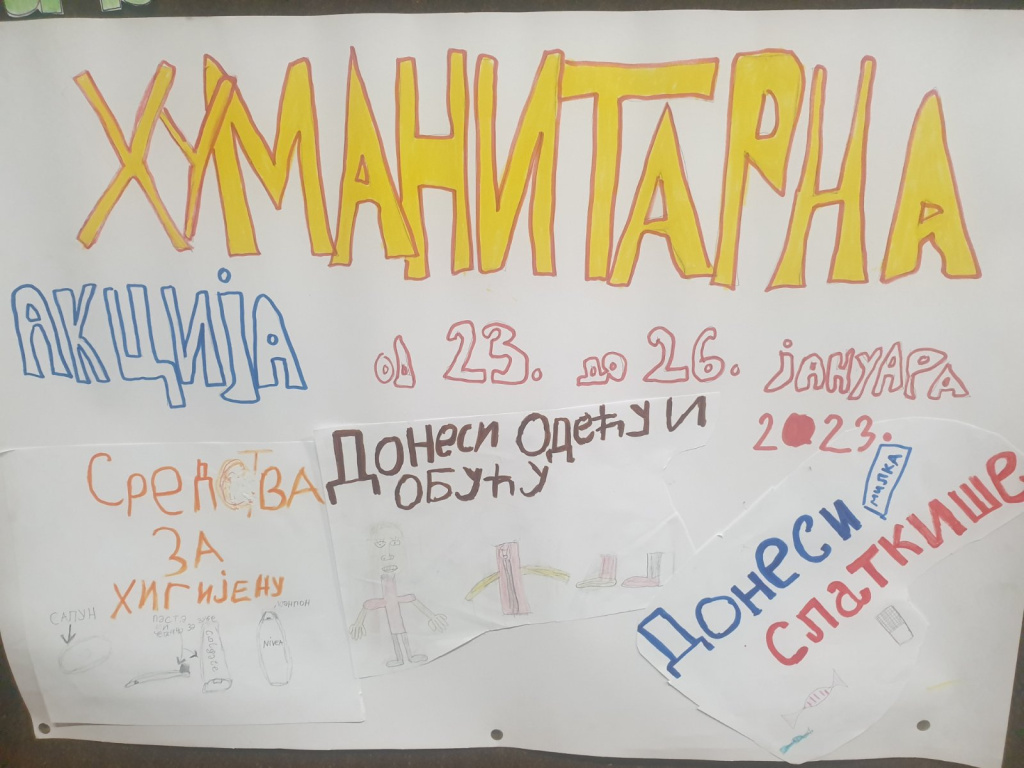 ХУМАНИТАРНА
АКЦИЈА
од 23. до 26. јануара
2023.
Средства
за
хигијену
САПУН
ПАСТА
ЗА
ЗУБЕ
Colgate
ШАМПОН
NIVEA
Донеси одећу и
обућу
Донеси
МИЛКА
слаткише